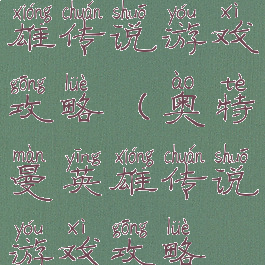 xióng chuán shuō yóu xì
雄传说游戏
gōng lüè ào tè
攻略（奥特
màn yīng xióng chuán shuō
曼英雄传说
yóu xì gōng lüè
游戏攻略